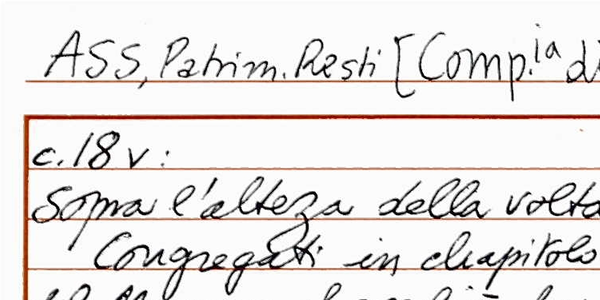 ASS, Patrim. Resti [Comp.ia di
c. 18 v:
Sopra l'alteza della volta
Congregati in chapitolo